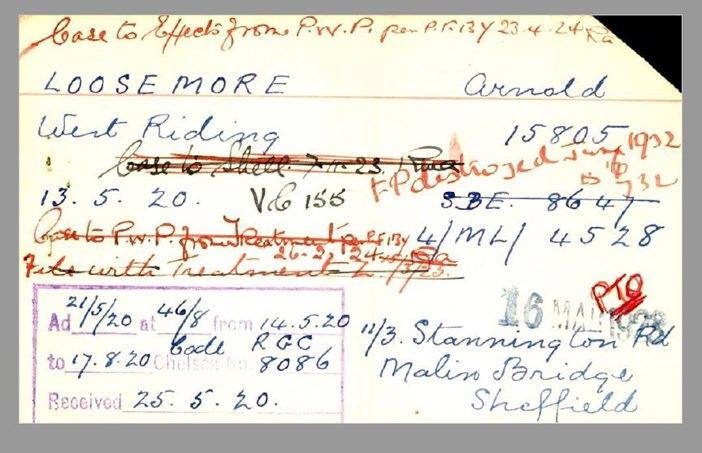 Case to Effects from P.W.P. per P.F. 13y 23.4.24
LOOSEMORE Arnold
West Riding 15805
Case to Shell. 7-11-23.
F.P destroyed June 1932
13. 5. 20. VC 155 SBE. 8647
Case to P.W.P. from Treatment per P.F. 13y 4/ML/ 4528
26-2-24
File with Treatment
PTO
16 MAR
Ad 21/5/20 at 46/8 from 14.5.20
to 17.8.20 Code RGC
Chelsea No. 8086
Received 25. 5. 20.
11/3. Stannington Rd
Malin Bridge
Sheffield